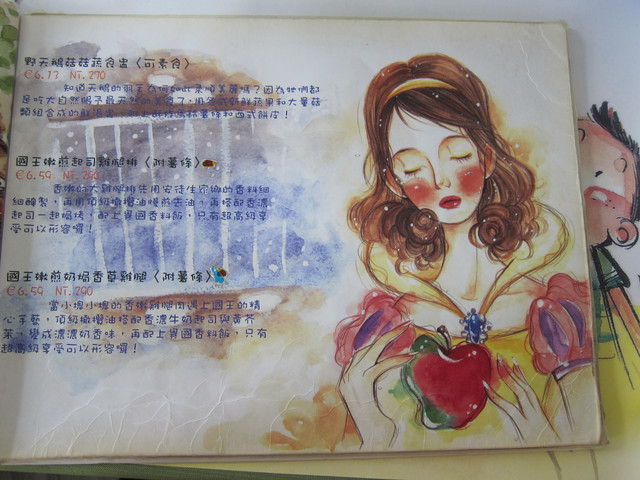 野天鵝菇菇蔬食盅〈可素食〉
€6.17 NT.270
知道天鵝的羽毛為何如此柔順美麗嗎？因為牠們都
是吃大自然賜予最天然的美食了，用各式新鮮蔬果和大量菇
類組合成的鮮湯盅，配上酥炸薯條和西式餅皮！
國王嫩煎起司雞腿排〈附薯條〉
€6.59 NT.290
香嫩的大雞腿排先用安徒生密緻的香料細
細醃製，再用頂級橄欖油慢煎去油，再搭配香濃
起司一起焗烤，配上異國香料飯，只有超高級享
受可以形容囉！
國王嫩煎奶焗香草雞腿〈附薯條〉
€6.59 NT.290
當小塊小塊的香嫩雞腿肉遇上國王的精
心手藝，頂級橄欖油搭配香濃牛奶起司與黃芥
茉，變成濃濃奶香味，再配上異國香料飯，只有
超高級享受可以形容囉！